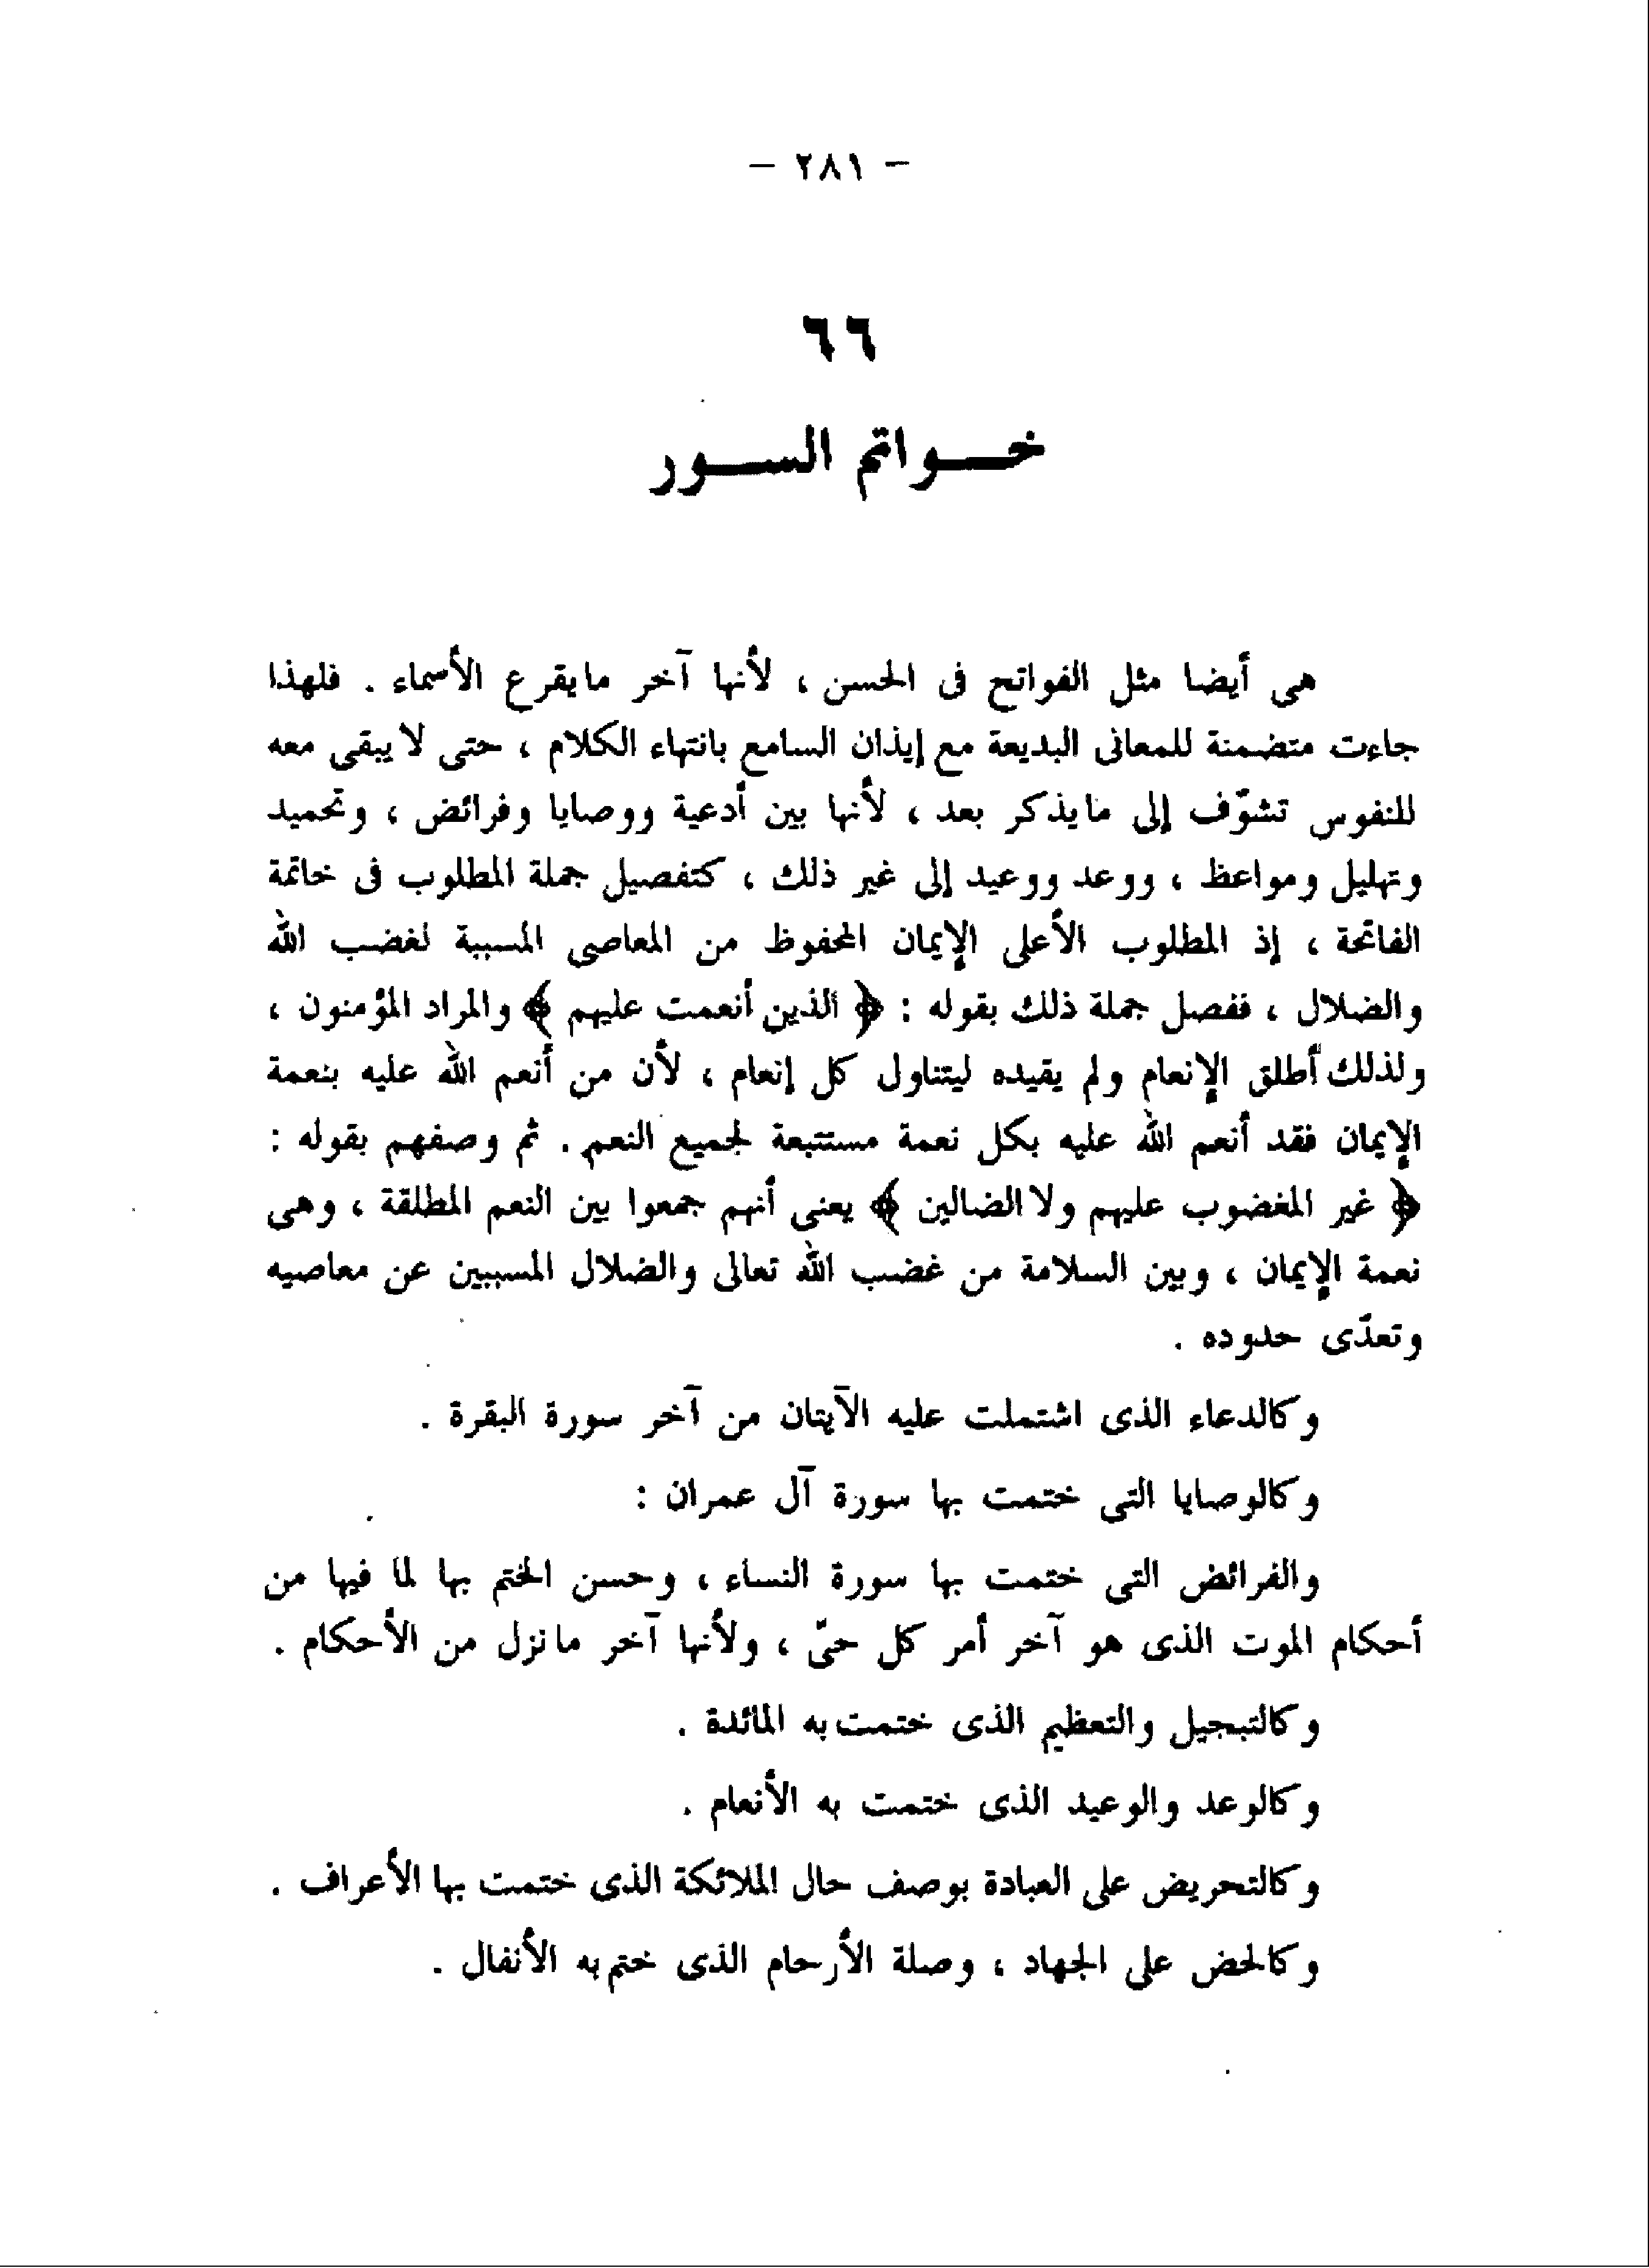 – ٢٨١ –
٦٦
خواتم السور
هى أيضا مثل الفواتح فى الحسن ، لأنها آخر مايقرع الأسماء . فلهذا
جاءت متضمنة للمعانى البديعة مع إيذان السامع بانتهاء الكلام ، حتى لا يبقى معه
للنفوس تشوّف إلى مايذكر بعد ، لأنها بين أدعية ووصايا وفرائض ، وتحميد
وتهليل ومواعظ ، ووعد ووعيد إلى غير ذلك ، كتفصيل جملة المطلوب فى خاتمة
الفاتحة ، إذ المطلوب الأعلى الإيمان المحفوظ من المعاصى المسببة لغضب الله
والضلال ، ففصل جملة ذلك بقوله : ﴿ الذين أنعمت عليهم ﴾ والمراد المؤمنون ،
ولذلك أطلق الإنعام ولم يقيده ليتناول كل إنعام ، لأن من أنعم الله عليه بنعمة
الإيمان فقد أنعم الله عليه بكل نعمة مستتبعة لجميع النعم . ثم وصفهم بقوله :
﴿ غير المغضوب عليهم ولا الضالين ﴾ يعنى أنهم جمعوا بين النعم المطلقة ، وهى
نعمة الإيمان ، وبين السلامة من غضب الله تعالى والضلال المسببين عن معاصيه
وتعدّى حدوده .
وكالدعاء الذى اشتملت عليه الآيتان من آخر سورة البقرة .
وكالوصايا التى ختمت بها سورة آل عمران :
والفرائض التى ختمت بها سورة النساء ، وحسن الختم بها لما فيها من
أحكام الموت الذى هو آخر أمر كل حىّ ، ولأنها آخر مانزل من الأحكام .
وكالتبجيل والتعظيم الذى ختمت به المائدة .
وكالوعد والوعيد الذى ختمت به الأنعام .
وكالتحريض على العبادة بوصف حال الملائكة الذى ختمت بها الأعراف .
وكالحض على الجهاد ، وصلة الأرحام الذى ختم به الأنفال .